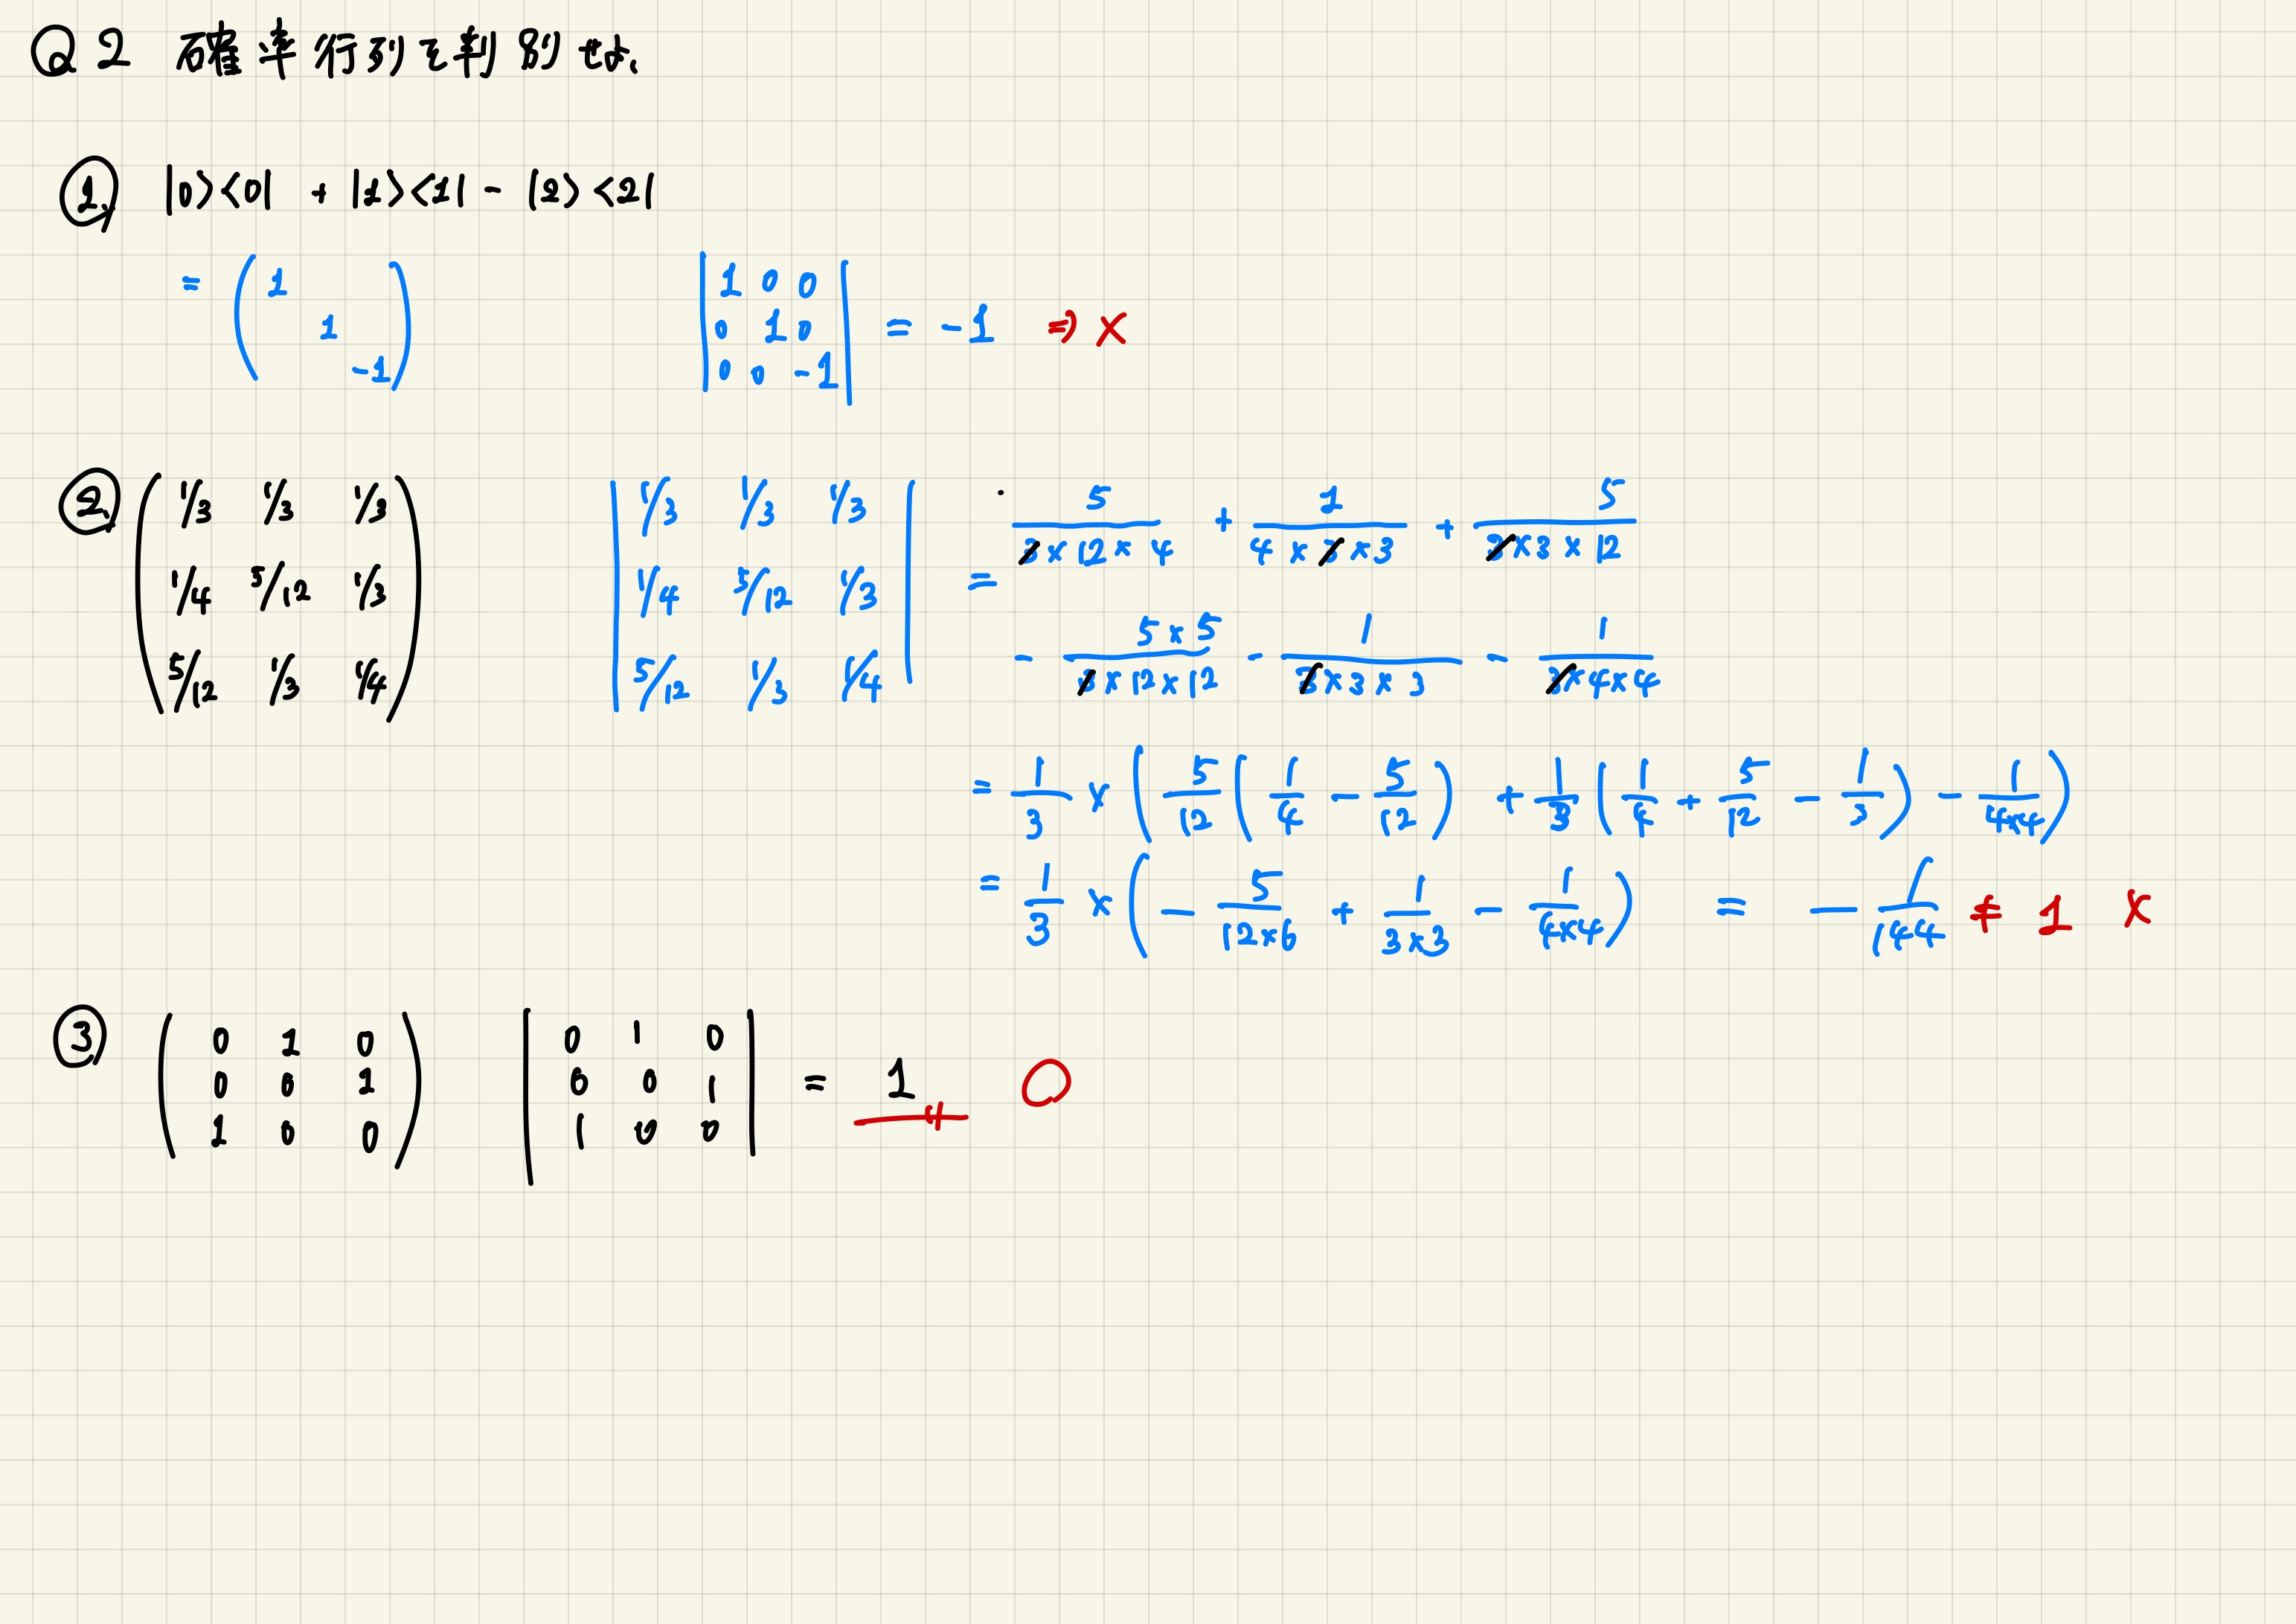 Q2 確率行列を判別せよ、
① |0><0| + |1><1| - |2><2|
= ( 1 1 -1 ) | 1 0 0 0 1 0 0 0 -1 | = -1 ⇒ ×
② ( 1/3 1/3 1/3 | 1/3 1/3 1/3 | 5/(3×12×4) + 1/(4×3×3) + 5/(3×3×12)
1/4 5/12 1/3 1/4 5/12 1/3 =
5/12 1/3 1/4 ) 5/12 1/3 1/4 | - 5×5/(3×12×12) - 1/(3×3×3) - 1/(3×4×4)
= 1/3 × ( 5/12 ( 1/4 - 5/12 ) + 1/3 ( 1/4 + 5/12 - 1/3 ) - 1/(4×4) )
= 1/3 × ( - 5/(12×6) + 1/(3×3) - 1/(4×4) ) = - 1/144 ≠ 1 ×
③ ( 0 1 0 | 0 1 0 |
0 0 1 0 0 1 = 1 ○
1 0 0 ) 1 0 0 |